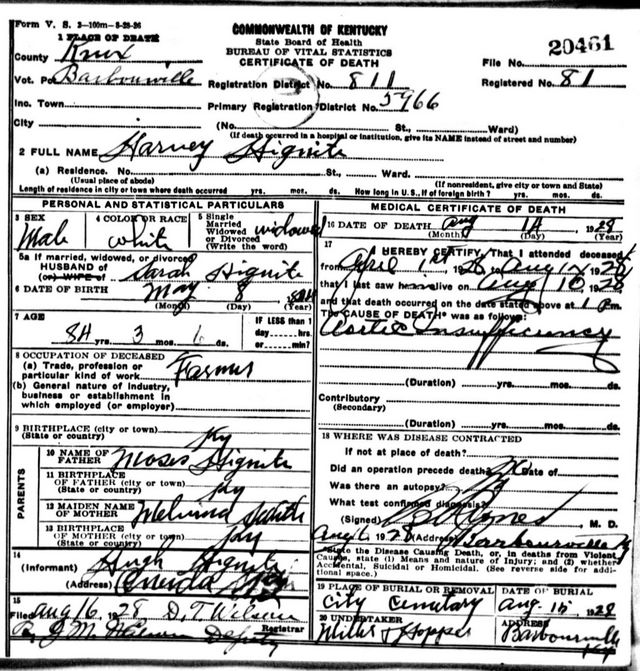 Form V. S. 3-100m-8-28-26
COMMONWEALTH OF KENTUCKY
State Board of Health
BUREAU OF VITAL STATISTICS
CERTIFICATE OF DEATH
1 PLACE OF DEATH
County Knox
Vot. Pct Barbourville
Inc. Town
City
File No. 20461
Registration District No. 811
Registered No. 81
Primary Registration District No. 5966
(No. St., Ward)
(If death occurred in a hospital or institution, give its NAME instead of street and number)
2 FULL NAME Harvey Hignite
(a) Residence. No. St., Ward.
(Usual place of abode) (If nonresident, give city or town and State)
Length of residence in city or town where death occurred yrs. mos. ds. How long in U.S., if of foreign birth? yrs. mos. ds.
PERSONAL AND STATISTICAL PARTICULARS
3 SEX Male
4 COLOR OR RACE white
5 Single Married Widowed or Divorced (Write the word) widowed
5a If married, widowed, or divorced
HUSBAND of Sarah Hignite
(or) WIFE of
6 DATE OF BIRTH May 8
(Month) (Day) (Year)
7 AGE 84 yrs. 3 mos. 6 ds.
IF LESS than 1 day----hrs. or----min.?
8 OCCUPATION OF DECEASED
(a) Trade, profession or particular kind of work Farmer
(b) General nature of industry, business or establishment in which employed (or employer)
9 BIRTHPLACE (city or town) Ky
(State or country)
PARENTS
10 NAME OF FATHER Moses Hignite
11 BIRTHPLACE OF FATHER (city or town) Ky
(State or country)
12 MAIDEN NAME OF MOTHER
13 BIRTHPLACE OF MOTHER (city or town) Ky
(State or country)
14
(Informant) Hugh Hignite
(Address) Oneida Ky
15
Filed Aug 16, 1928 D. T. Wilson
Registrar
By J M Wilson Deputy
MEDICAL CERTIFICATE OF DEATH
16 DATE OF DEATH Aug 14 1928
(Month) (Day) (Year)
17
I HEREBY CERTIFY, That I attended deceased
from April 1st Aug
that I last saw him alive on Aug 10 1928
and that death occurred on the date stated above at 1 P.m.
The CAUSE OF DEATH* was as follows:
Aortic Insufficiency
(Duration) yrs. mos. ds.
Contributory
(Secondary)
(Duration) yrs. mos. ds.
18 WHERE WAS DISEASE CONTRACTED
If not at place of death?
Did an operation precede death? No Date of
Was there an autopsy?
What test confirmed diagnosis?
(Signed) M. D.
Aug 1928 (Address) Barbourville Ky
*State the Disease Causing Death, or, in deaths from Violent Causes, state (1) Means and Nature of Injury; and (2) whether Accidental, Suicidal or Homicidal. (See reverse side for additional space.)
19 PLACE OF BURIAL OR REMOVAL City Cemetary
DATE OF BURIAL Aug. 15 1928
20 UNDERTAKER Miller & Hopper
ADDRESS Barbourville Ky